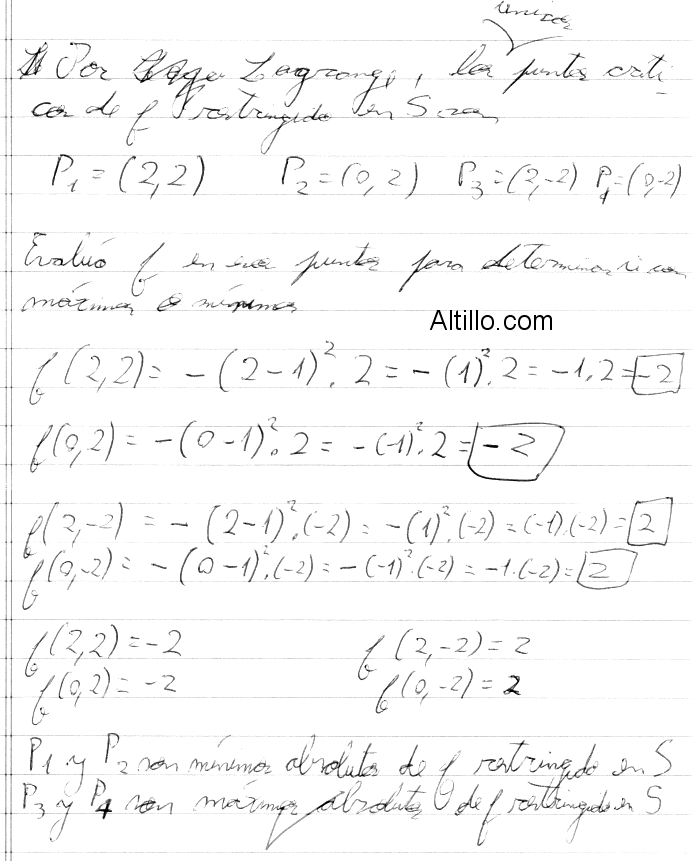 únicos
Por Lagrange, los puntos críti-
cos de f restringido en S son
P₁ = (2,2) P₂ = (0,2) P₃ = (2,-2) P₄ = (0,-2)
Evalúo f en esos puntos para determinar si son
máximos o mínimos
Altillo.com
f(2,2) = -(2-1)².2 = -(1)².2 = -1.2 = -2
f(0,2) = -(0-1)².2 = -(-1)².2 = -2
f(2,-2) = -(2-1)².(-2) = -(1)².(-2) = (-1).(-2) = 2
f(0,-2) = -(0-1)².(-2) = -(-1)².(-2) = -1.(-2) = 2
f(2,2) = -2 f(2,-2) = 2
f(0,2) = -2 f(0,-2) = 2
P₁ y P₂ son mínimos absolutos de f restringido en S
P₃ y P₄ son máximos absolutos de f restringido en S